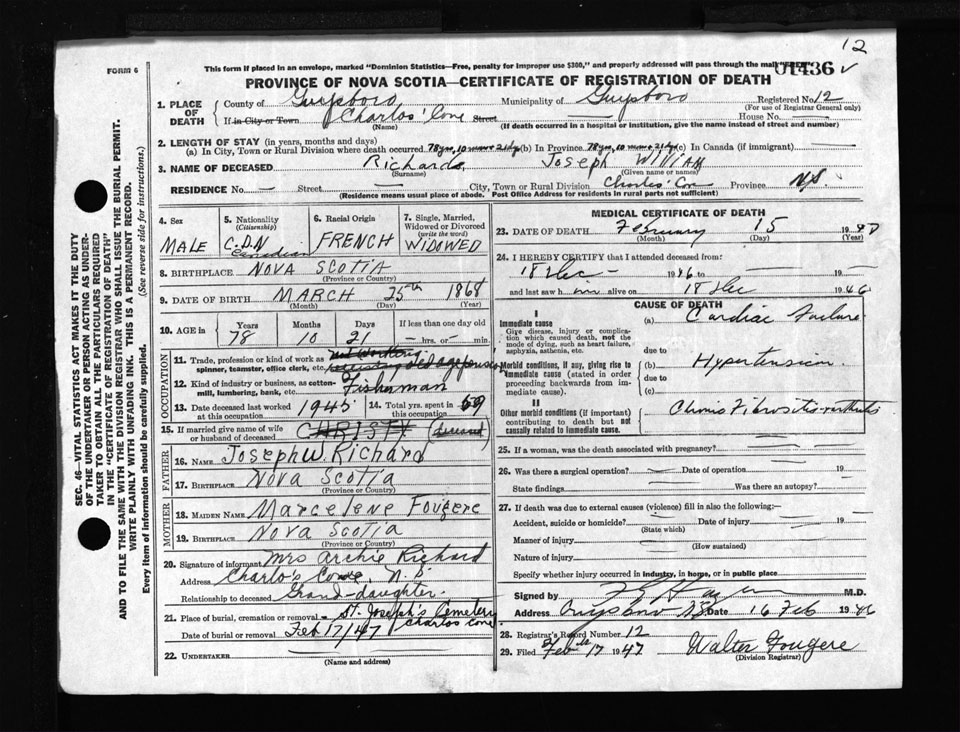 12
FORM 6
This form if placed in an envelope, marked "Dominion Statistics—Free, penalty for improper use $300," and properly addressed will pass through the mail
01436
PROVINCE OF NOVA SCOTIA—CERTIFICATE OF REGISTRATION OF DEATH
1. PLACE OF DEATH County of Guysboro Municipality of Guysboro Registered No. 12
(For use of Registrar General only)
If in City or Town Charlos' Cove Street House No. —
(Name) (If death occurred in a hospital or institution, give the name instead of street and number)
2. LENGTH OF STAY (in years, months and days)
(a) In City, Town or Rural Division where death occurred 78 yrs, 10 mons 21 dys (b) In Province 78 yrs, 10 mons 21 dys (c) In Canada (if immigrant)
3. NAME OF DECEASED Richard, Joseph William
(Surname) (Given name or names)
RESIDENCE No. — Street — City, Town or Rural Division Charlos' Cove Province N.S.
(Residence means usual place of abode. Post Office Address for residents in rural parts not sufficient)
4. Sex MALE
5. Nationality (Citizenship) CDN Canadian
6. Racial Origin FRENCH
7. Single, Married, Widowed or Divorced (write the word) WIDOWED
8. BIRTHPLACE NOVA SCOTIA
(Province or Country)
9. DATE OF BIRTH MARCH 25th 1868
(Month) (Day) (Year)
10. AGE in Years 78 Months 10 Days 21 If less than one day old — hrs. or — min.
OCCUPATION
11. Trade, profession or kind of work as spinner, teamster, office clerk, etc. Not Working old age pension
12. Kind of industry or business, as cotton-mill, lumbering, bank, etc. Fisherman
13. Date deceased last worked at this occupation 1945
14. Total yrs. spent in this occupation 59
15. If married give name of wife or husband of deceased CHRISTY (deceased)
FATHER
16. NAME Joseph W. Richard
17. BIRTHPLACE NOVA SCOTIA
(Province or Country)
MOTHER
18. MAIDEN NAME Marcelene Fougere
19. BIRTHPLACE NOVA SCOTIA
(Province or Country)
20. Signature of informant Mrs Archie Richard
Address Charlo's Cove, N.S.
Relationship to deceased Grand-daughter
21. Place of burial, cremation or removal St. Joseph's Cemetery Charlos Cove
Date of burial or removal Feb 17/47
22. UNDERTAKER
(Name and address)
MEDICAL CERTIFICATE OF DEATH
23. DATE OF DEATH February 15 19
(Month) (Day) (Year)
24. I HEREBY CERTIFY that I attended deceased from:
18 Dec 1946 to — 19—
and last saw him alive on 18 Dec 1946
CAUSE OF DEATH
I
Immediate cause (a) Cardiac Failure
Give disease, injury or complication which caused death, not the mode of dying, such as heart failure, asphyxia, asthenia, etc.
due to
Morbid conditions, if any, giving rise to immediate cause (stated in order proceeding backwards from immediate cause).
(b) Hypertension.
due to
(c)
II
Other morbid conditions (if important) contributing to death but not causally related to immediate cause.
Chronic Fibrositis-arthritis
25. If a woman, was the death associated with pregnancy?
26. Was there a surgical operation? — Date of operation — 19
State findings — Was there an autopsy? —
27. If death was due to external causes (violence) fill in also the following:—
Accident, suicide or homicide? Date of injury 19
(State which)
Manner of injury
(How sustained)
Nature of injury
Specify whether injury occurred in industry, in home, or in public place
Signed by M.D.
Address Guysboro N.S. Date 16 Feb 1946
28. Registrar's Record Number 12
29. Filed Feb 17 1947 Walter Fougere
(Division Registrar)
SEC. 46—VITAL STATISTICS ACT MAKES IT THE DUTY
OF THE UNDERTAKER OR PERSON ACTING AS UNDER-
TAKER TO OBTAIN ALL THE PARTICULARS REQUIRED
IN THE "CERTIFICATE OF REGISTRATION OF DEATH"
AND TO FILE THE SAME WITH THE DIVISION REGISTRAR WHO SHALL ISSUE THE BURIAL PERMIT.
WRITE PLAINLY WITH UNFADING INK. THIS IS A PERMANENT RECORD.
Every item of information should be carefully supplied. (See reverse side for instructions.)